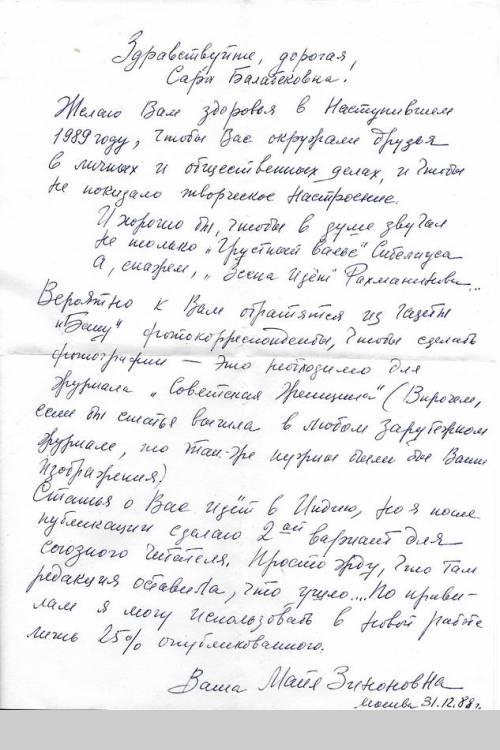 Здравствуйте, дорогая,
Сара Балабековна!
Желаю Вам здоровья в Наступившем
1989 году, чтобы Вас окружали друзья
в личных и общественных делах, и чтобы
не покидало творческое настроение.
И хорошо бы, чтобы в душе звучал
не только „Грустный вальс" Сибелиуса
а, скажем, „Весна идёт" Рахманинова...
Вероятно к Вам обратятся из газеты
фотокорреспонденты, чтобы сделать
фотографии — это необходимо для
журнала „Советская Женщина" (Впрочем,
если бы статья вышла в любом зарубежном
журнале, то так-же нужны были бы Ваши
изображения)
Статья о Вас идёт в Индию, но я после
публикации сделаю 2ой вариант для
союзного читателя. Просто жду, что там
редакция оставила, что ушло... По прави-
лам я могу использовать в новой работе
лишь 25% опубликованного.
Ваша Майя Зиноновна
Москва 31.12.88г.